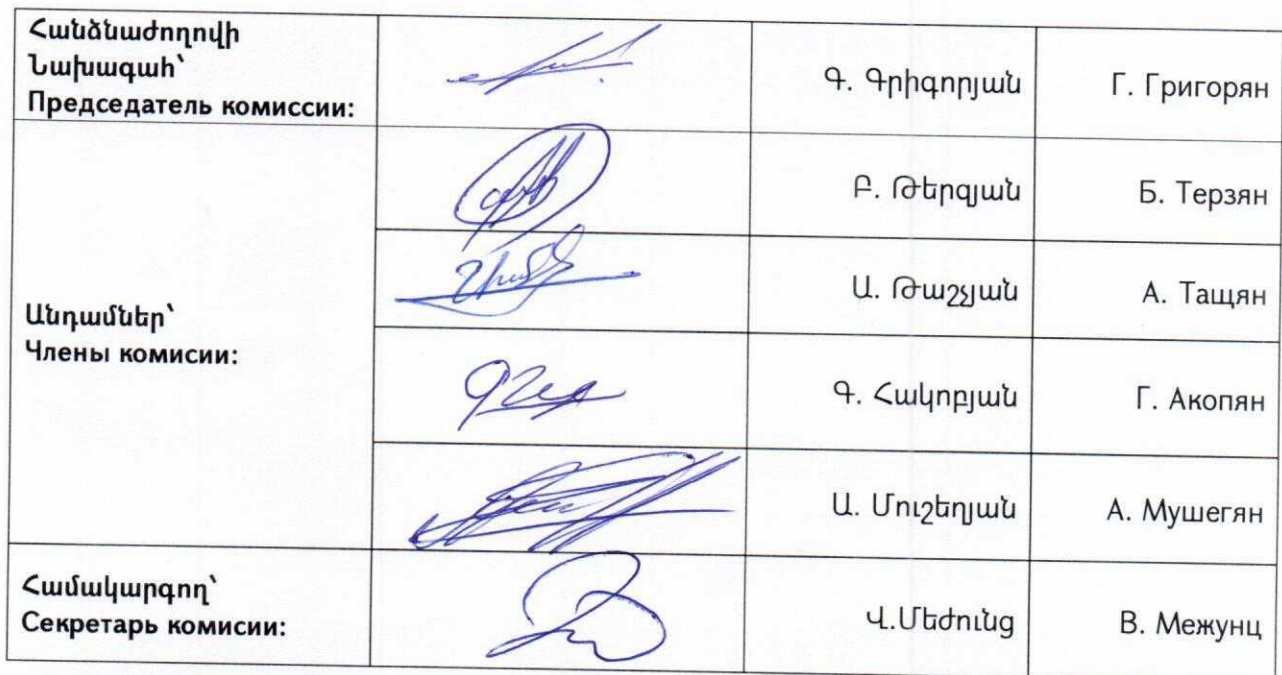 Հանձնաժողովի
Նախագահ՝
Председатель комиссии:
Գ. Գրիգորյան
Г. Григорян
Բ. Թերզյան
Б. Терзян
Անդամներ՝
Члены комисии:
Ա. Թաշչյան
А. Тащян
Գ. Հակոբյան
Г. Акопян
Ա. Մուշեղյան
А. Мушегян
Համակարգող՝
Секретарь комисии:
Վ.Մեժունց
В. Межунц